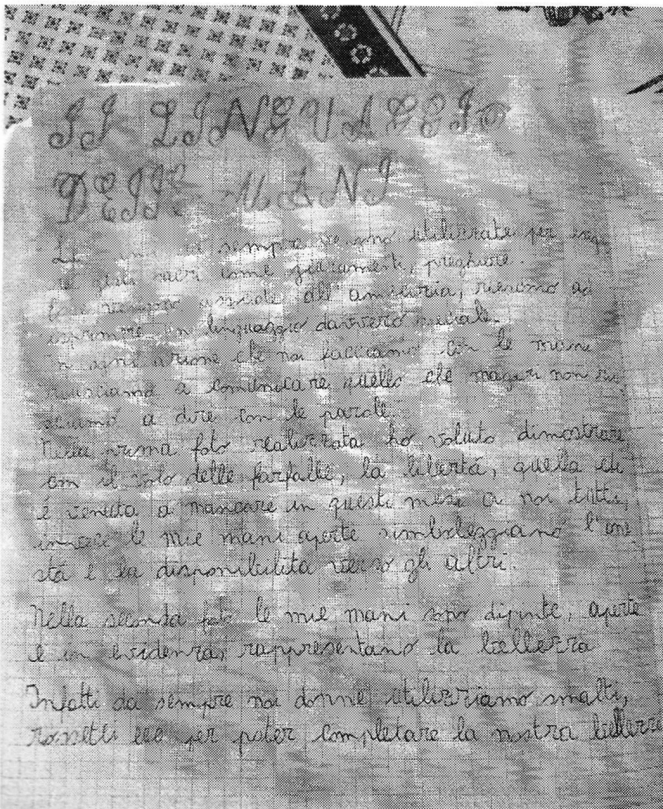 Il LINGUAGGIO
DELLE MANI
sempre utilizzate per
sacri come giuramenti, preghiere.
amicizia, riescono ad
esprimere un linguaggio davvero speciale.
In ogni azione che noi facciamo con le mani
riusciamo a comunicare quello che magari non riu
sciamo a dire con le parole.
Nella prima foto realizzata ho voluto dimostrare,
con il volo delle farfalle, la libertà, quella che
é venuta a mancare in questi mesi a noi tutti,
invece le mie mani aperte simboleggiano l'one
stá e la disponibilita verso gli altri.
Nella seconda foto le mie mani sono dipinte, aperte
e in evidenza, rappresentano la bellezza
Infatti da sempre noi donne utilizziamo smalti,
rossetti ecc per poter completare la nostra bellezza